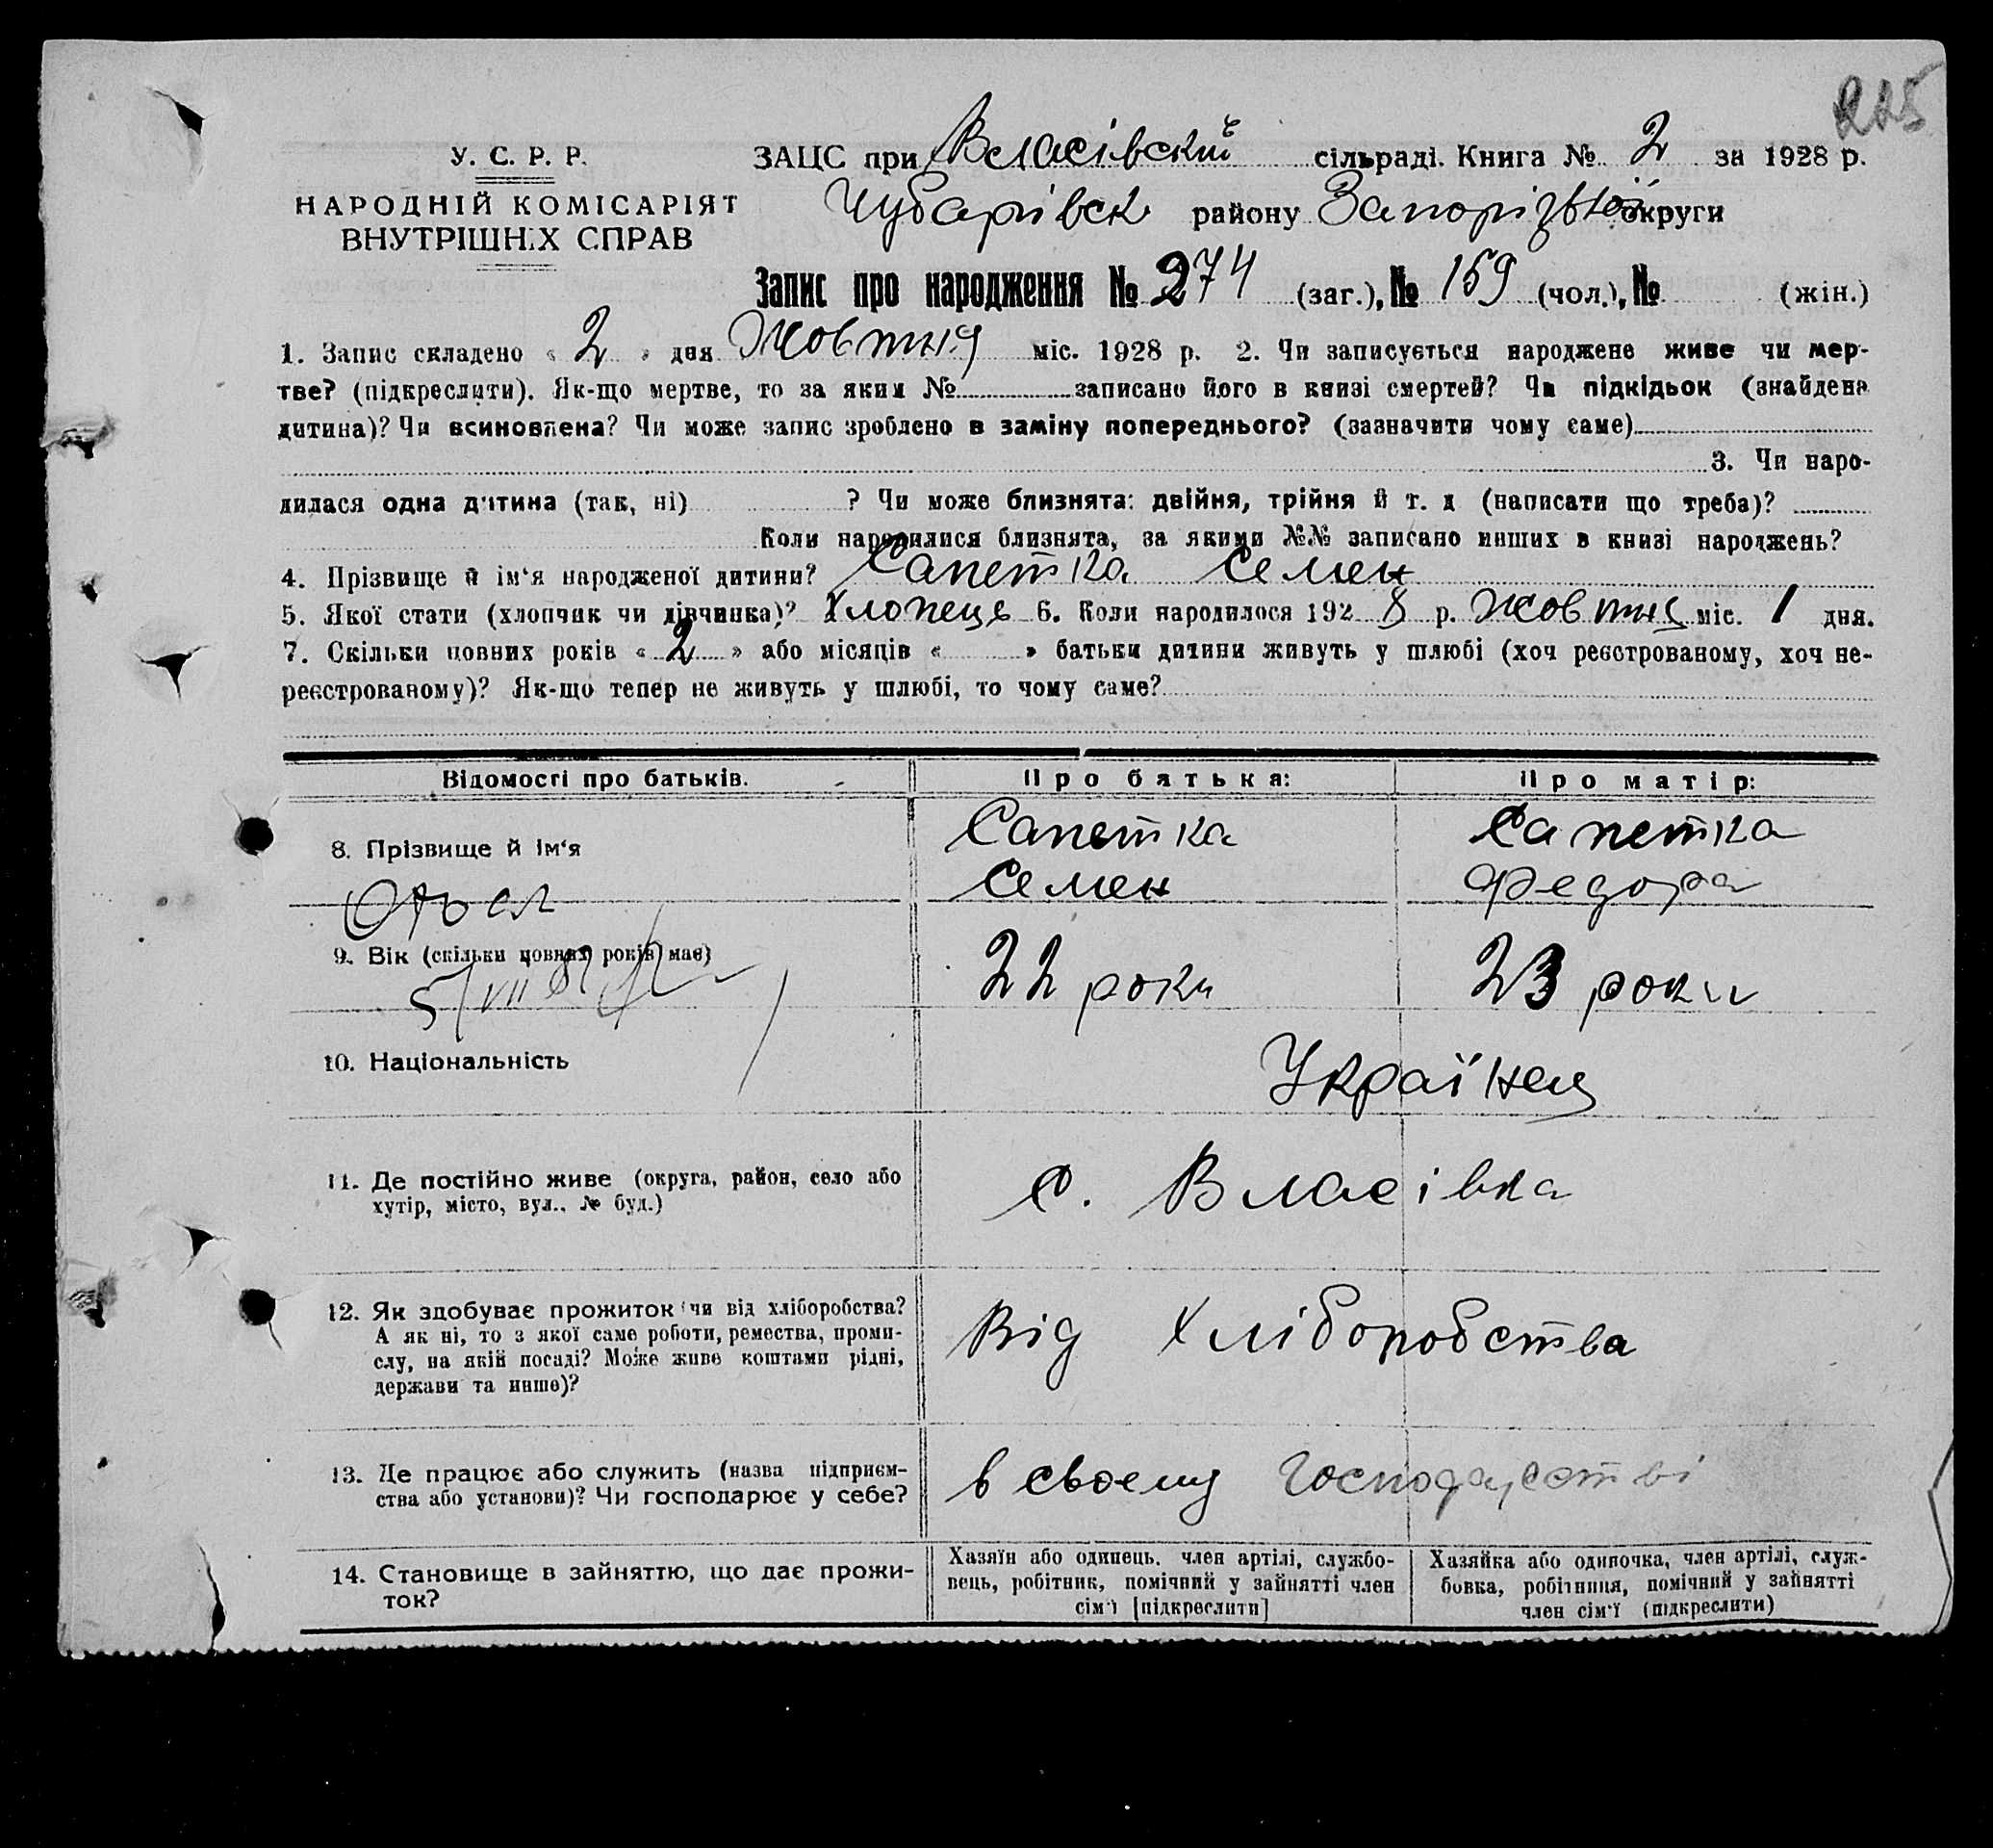 225
У. С. Р. Р.
НАРОДНІЙ КОМІСАРІЯТ
ВНУТРІШНІХ СПРАВ
ЗАЦС при Власівській сільраді. Книга № 2 за 1928 р.
Чубарівськ району Запорізької округи
Запис про народження № 274 (заг.), № 159 (чол.), № (жін.)
1. Запис складено « 2 » дня Жовтня міс. 1928 р. 2. Чи записується народжене живе чи мер-
тве? (підкреслити). Як-що мертве, то за яким № записано його в книзі смертей? Чи підкідьок (знайдена
дитина)? Чи всиновлена? Чи може запис зроблено в заміну попереднього? (зазначити чому саме)
3. Чи наро-
дилася одна дитина (так, ні) ? Чи може близнята: двійня, трійня й т. д (написати що треба)?
Коли народилися близнята, за якими №№ записано инших в книзі народжень?
4. Прізвище й ім‘я народженої дитини? Сапетка Семен
5. Якої стати (хлопчик чи дівчинка)? Хлопець 6. Коли народилося 1928 р. Жовтня міс. 1 дня.
7. Скільки повних років « 2 » або місяців « » батьки дитини живуть у шлюбі (хоч реєстрованому, хоч не-
реєстрованому)? Як-що тепер не живуть у шлюбі, то чому саме?
Відомості про батьків. Про батька: Про матір:
8. Прізвище й ім‘я Сапетка Семен Сапетка Федора
9. Вік (скільки повних років має) 22 роки 23 роки
10. Національність Українец
11. Де постійно живе (округа, район, село або
хутір, місто, вул., № буд.) с. Власівка
12. Як здобуває прожиток (чи від хліборобства?
А як ні, то з якої саме роботи, ремества, проми-
слу, на якій посаді? Може живе коштами рідні,
держави та инше)? Від Хліборобства
13. Де працює або служить (назва підприєм-
ства або установи)? Чи господарює у себе? в своему Господарстві
14. Становище в зайняттю, що дає прожи-
ток?
Хазяїн або одинець, член артілі, службо-
вець, робітник, помічний у зайнятті член
сім‘ї [підкреслити]
Хазяйка або одиночка, член артілі, служ-
бовка, робітниця, помічний у зайнятті
член сім‘ї (підкреслити)